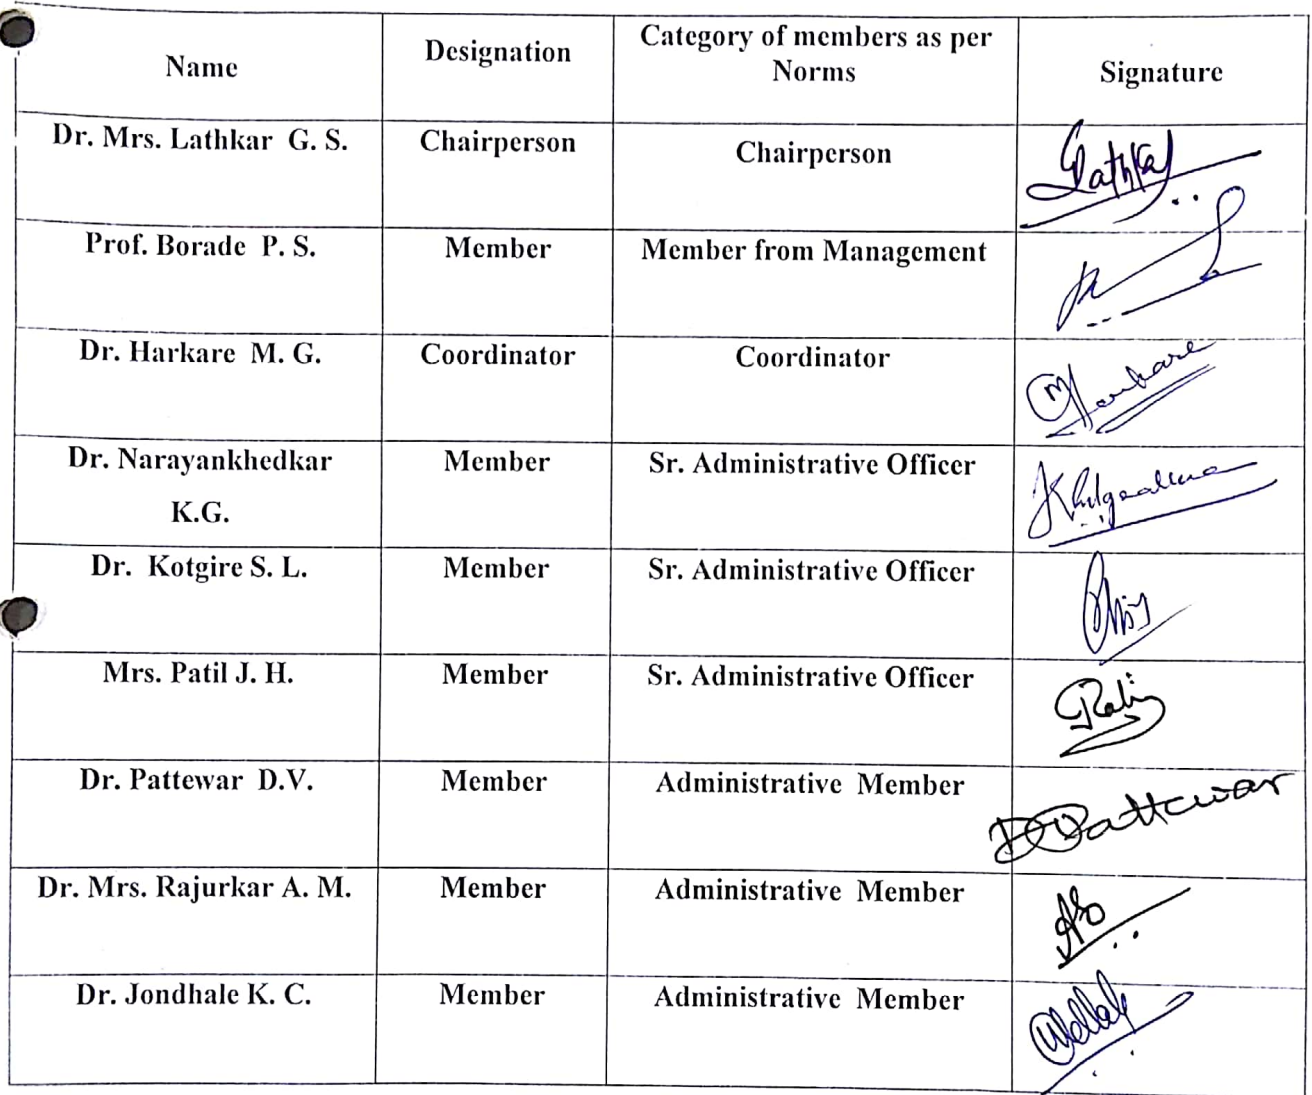 Name
Designation
Category of members as per
Norms
Signature
Dr. Mrs. Lathkar G. S.
Chairperson
Chairperson
Prof. Borade P. S.
Member
Member from Management
Dr. Harkare M. G.
Coordinator
Coordinator
Dr. Narayankhedkar
K.G.
Member
Sr. Administrative Officer
Dr. Kotgire S. L.
Member
Sr. Administrative Officer
Mrs. Patil J. H.
Member
Sr. Administrative Officer
Dr. Pattewar D.V.
Member
Administrative Member
DPattewar
Dr. Mrs. Rajurkar A. M.
Member
Administrative Member
Dr. Jondhale K. C.
Member
Administrative Member